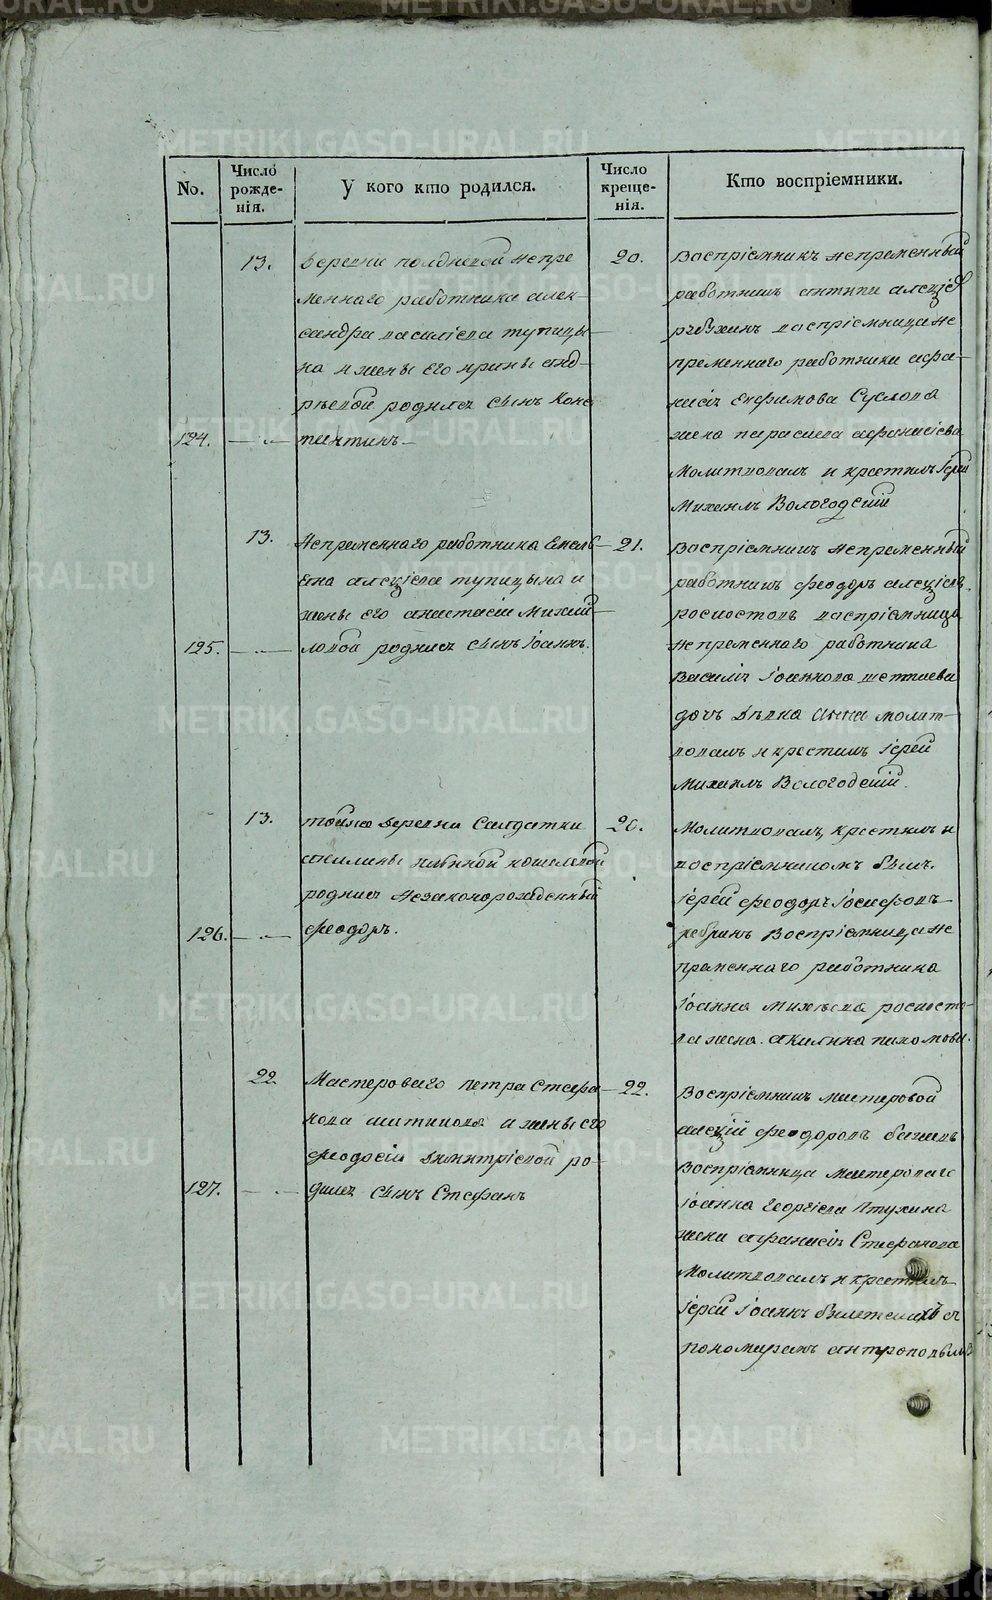 No.
Число рожде-
нія.
У кого кто родился.
Число креще-
нія.
Кто воспріемники.
13.
Деревни полдневой непре
меннаго работника алек-
сандра василіева тупицы-
на и жены его ирины анд-
реевой родился сынъ Конс
124.
тантинъ
20.
Воспріемникъ непременный
работникъ антипа алексіев
воспріемница не
пременнаго работника афа-
насія Ефимова Суслова
жена параскева афанасіева
Молитвовалъ и крестилъ Іерей
Михаилъ Вологодскій
13.
Непременнаго работника Емель
яна алексіева тупицына и
жены его анастасіи Михай
125.
ловой родился сынъ Іоаннъ.
21.
Воспріемникъ непременный
работникъ феодоръ алексіев
воспріемница
непременнаго работника
Василія Іоаннова
дочь девка анна молит-
вовалъ и крестилъ Іерей
Михаилъ Вологодскій.
13.
тойже деревни Салдатки
акилины ильиной кошелевой
родился незаконорожденный
126.
феодоръ.
20.
Молитвовалъ, крестилъ и
воспріемникомъ былъ
Іерей феодоръ Іосифовъ
Воспріемница не
пременнаго работника
Іоанна Михеева
жена акилина пахомова.
22
Мастероваго петра Стефа
нова и жены его
феодосіи димитріевой ро-
127.
дился сынъ Стефанъ
22.
Воспріемникъ мастеровой
алексій феодоровъ
Воспріемница Мастероваго
Іоанна Георгіева Птухина
жена афанасія Стефанова
Молитвовалъ и крестилъ
Іерей Іоаннъ с
пономаремъ
METRIKI.GASO-URAL.RU